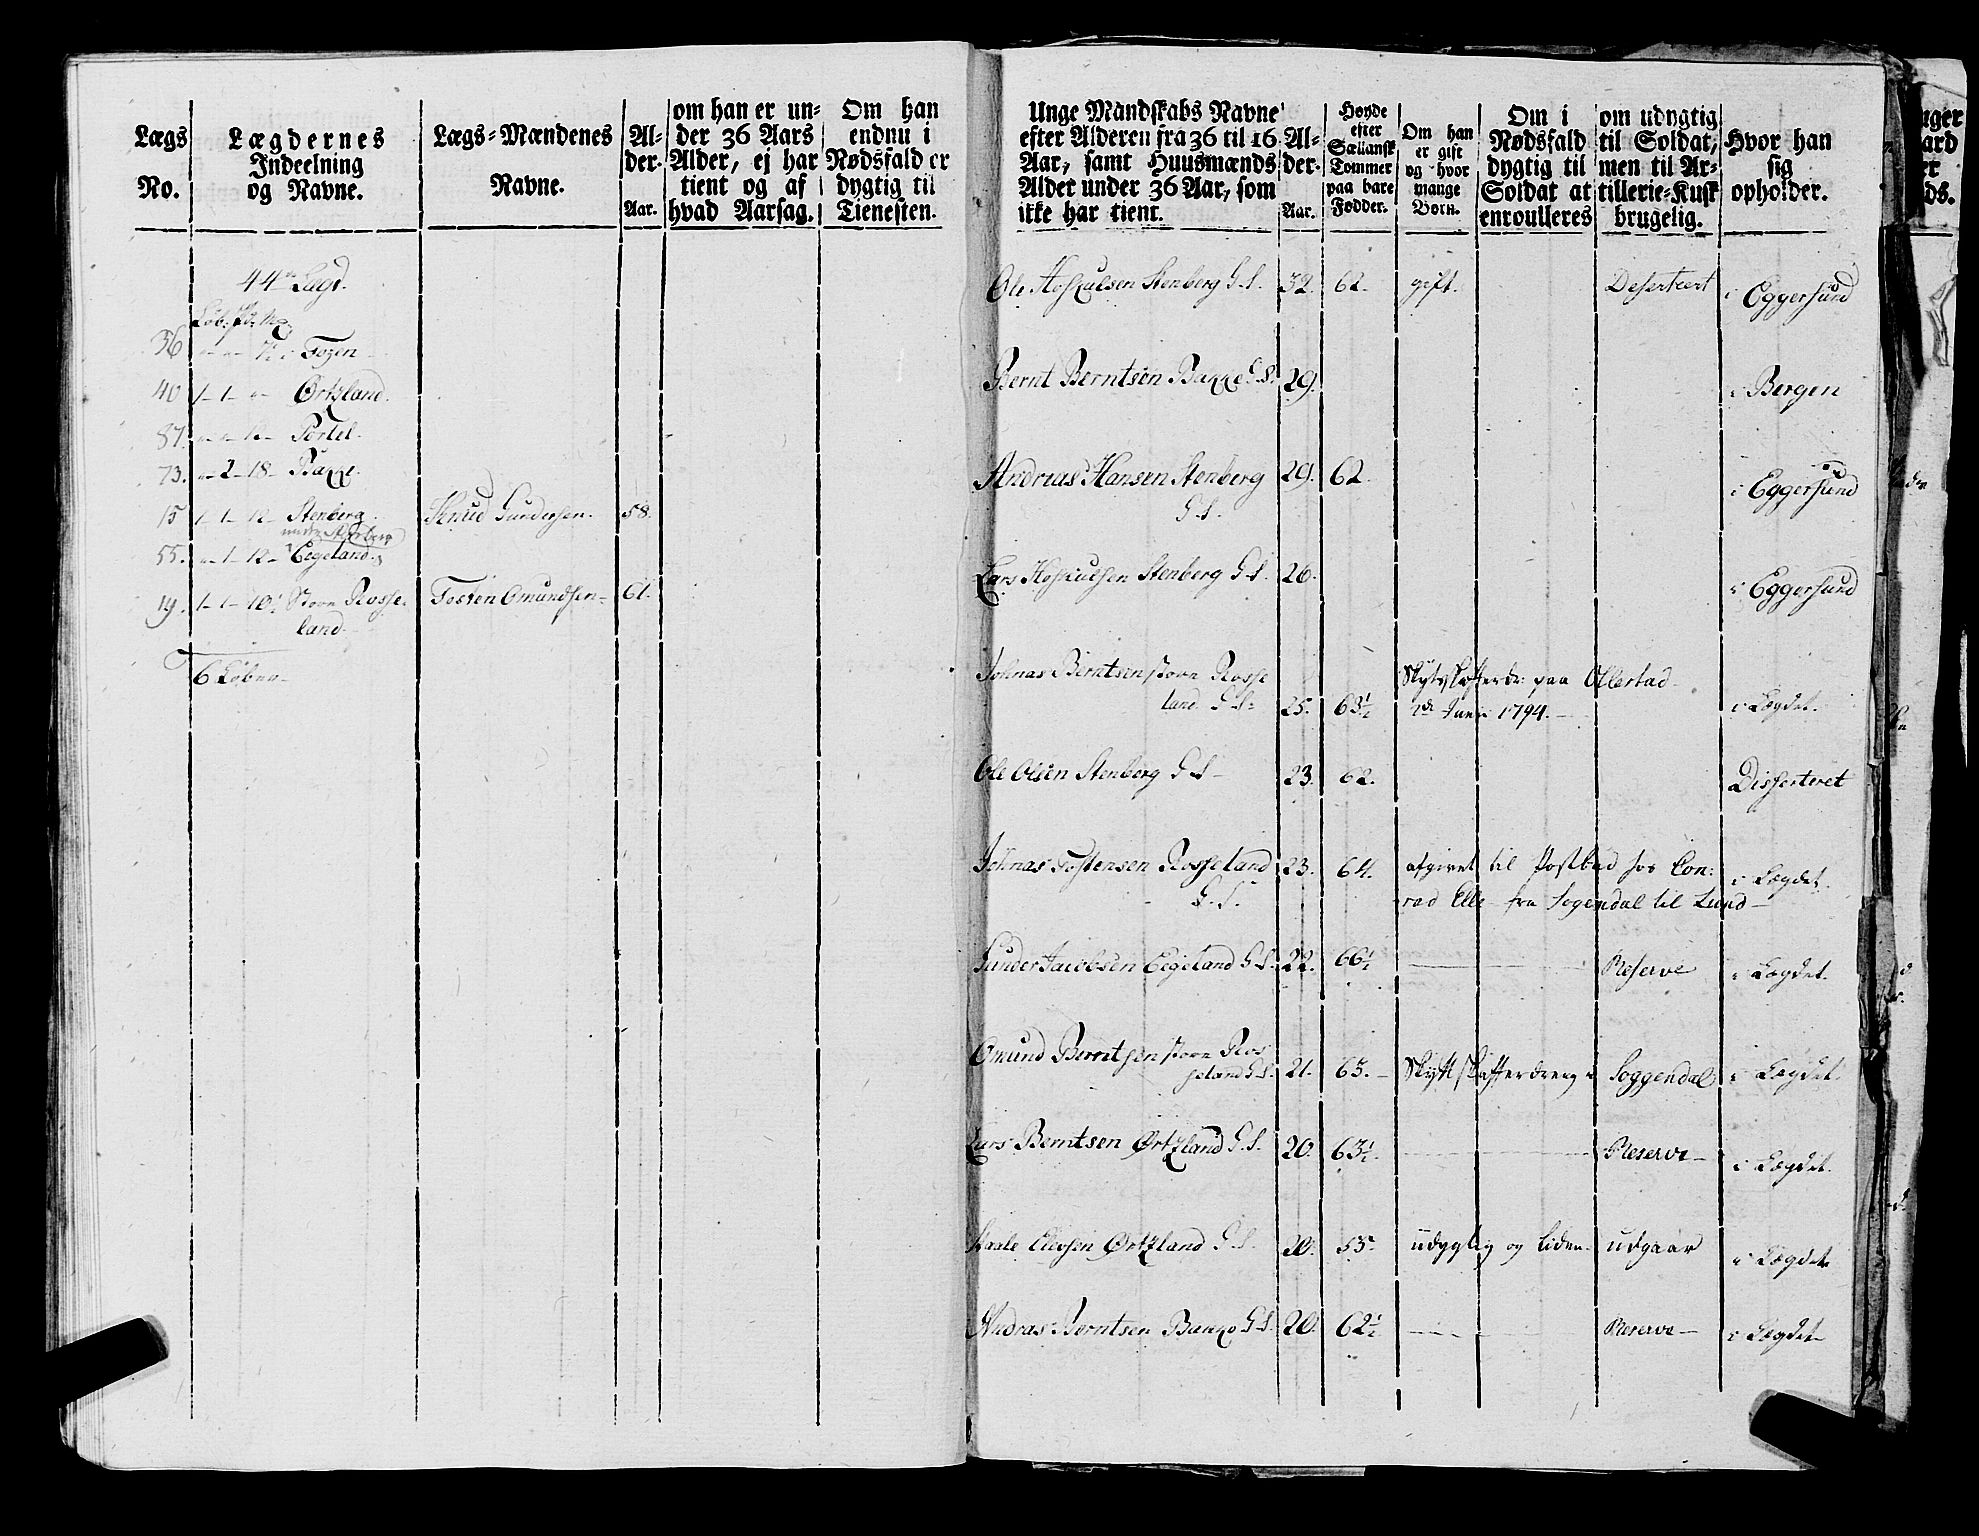 Lægs
No.
Lægdernes
Indeelning
og Navne.
Lægs-Mændenes
Navne.
Al-
der.
Aar.
om han er un-
der 36 Aars
Alder, ej har
tient og af
hvad Aarsag.
Om han
endnu i
Nødsfald er
dygtig til
Tienesten.
44de Lægd.
36 Tozen
40 1-1- Ørtzland.
87. 12- Tortel.
73. 2-18- Bakke.
15 1-1-12- Stenberg. Knud Gundersen. 58.
55. 1-12- Eegeland.
19. 1-1-10 Store Rosse- Tosten Omundsen 61.
land.
6 Løber
Unge Mandskabs Navne
efter Alderen fra 36 til 16
Aar, samt Huusmænds
Alder under 36 Aar, som
ikke har tient.
Al-
der.
Aar.
Høyde
efter
Sællansk
Tommer
paa bare
Fødder.
Om han
er gift
og hvor
mange
Børn.
Om i
Nødsfald
dygtig til
Soldat at
enroulleres
om udygtig
til Soldat,
men til Ar-
tillerie-Kusk
brugelig.
Hvor han
sig
opholder.
Ole Hoskulsen Stenberg G.S. 32. 62. gift. Deserteert i Eggersund
Bernt Berntsen Bakke G.S. 29. i Bergen
Andreas Hansen Stenberg 29. 62. i Eggersund
G.S.
Lars Hoskulsen Stenberg G.S. 26. i Eggersund
Johnas Berntsen store Rosse
land G.S. 25. 63½
Skydskafferdr: paa Ollestad
Junii 1794. i Lægdet.
Ole Olsen Stenberg G.S. 23. 62. Disserteret
Johnas Tostensen Rosseland 23. 64. afgivet til Postbud hos Con- i Lægdet.
G.S. rad Elle fra Sogendal til Lund
Gunder Jacobsen Eegeland G.S. 22. 66½ Reserve i Lægdet.
Omund Berntsen store Ros
seland G.S. 21. 63. Skydtskafferdreng i Soggendal i Lægdet.
Lars Berntsen Ørtzland G.S. 20. 63½ Reserve i Lægdet.
Staale Elevsen Ørtzland G.S. 20. 53. udygtig og liden udgaar i Lægdet
Andreas Berntsen Bakke G.S. 20. 62½ Reserve i Lægdet